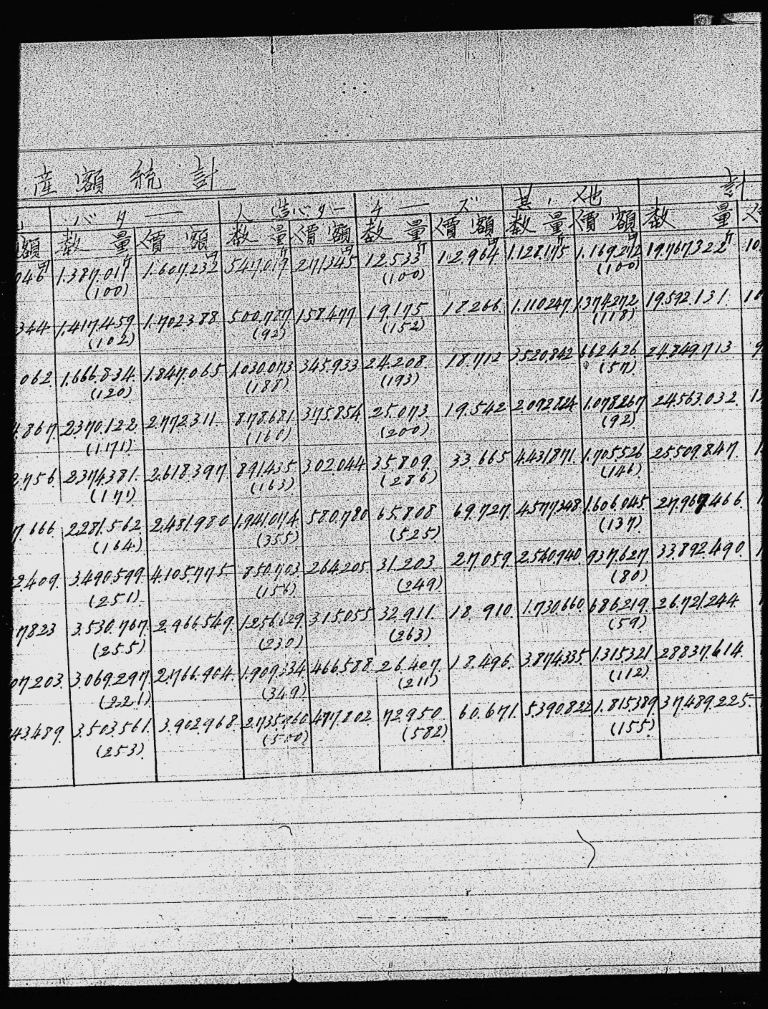 産額統計
バター 人造バター チーズ 其ノ他 計
額 数量 價額 数量 價額 数量 價額 数量 價額 数量
046 1.387.017 1.607.232 547.017 271.345 12.533 12.964 1.128.175 1.169.272 19.767.322 10
(100) (100) (100)
344 1.417.459 1.702.388 500.787 158.477 19.175 18.266 1.110.247 1.374.272 19.592.131 10
(102) (92) (152) (118)
062 1.666.834 1.847.065 1.030.073 345.933 24.208 18.712 3.520.842 662.426 24.849.713
(120) (188) (193) (57)
4.867 2.370.122 2.772.311 878.681 375.854 25.073 19.542 2.092.824 1.078.267 24.563.032
(171) (160) (200) (92)
2.756 2.374.381 2.618.397 891.435 302.044 35.809 33.665 4.431.871 1.705.526 25.509.847
(171) (163) (286) (146)
7.666 2.281.562 2.481.980 1.941.074 580.780 65.808 69.727 4.577.348 1.606.045 27.969.466
(164) (355) (525) (137)
22.409 3.490.599 4.105.775 850.703 264.205 31.203 27.059 2.540.940 937.627 33.892.490
(251) (156) (249) (80)
7823 3.530.767 2.966.549 1.256.629 315.055 32.911 18.910 1.730.660 686.219 26.721.244
(255) (230) (263) (59)
07203 3.069.297 2.766.904 1.909.334 466.588 26.407 18.496 3.874.335 1.315.321 28.837.614
(221) (349) (211) (112)
43489 3.503.561 3.902.968 2.735.960 477.802 72.950 60.671 5.390.822 1.815.389 37.489.225
(253) (500) (582) (155)